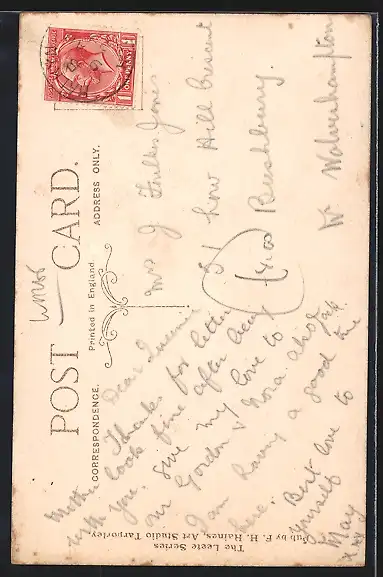 POST CARD.
Printed in England
CORRESPONDENCE.
ADDRESS ONLY.
ONE PENNY
Mrs J Foulkes Jones
51 Low Hill Crescent
Bushbury
Nr Wolverhampton
Dear
Thanks for letter
look fine after being
with you. Give my love to
Mr Gordon & Nora also Jack
I am having a good time
here. Best love to
yourself
May
xxx
Mother
The Leete Series
Pub by F. H. Haines, Art Studio Tarporley.